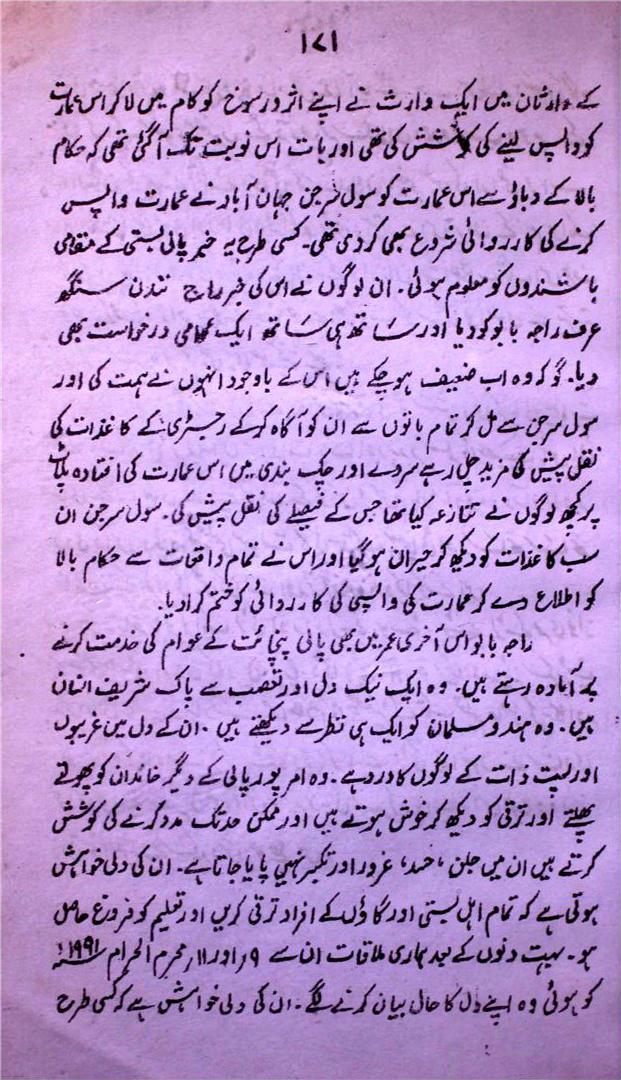 ۱۷۱
کے وارثان میں ایک وارث نے اپنے اثر و رسوخ کو کام میں لاکر اس عمارت
کو واپس لینے کی کوشش کی تھی اور بات اس نوبت تک آگئی تھی کہ حکام
بالا کے دباؤ سے اس عمارت کو سول سرجن جہان آباد نے عمارت واپس
کرنے کی کارروائی شروع بھی کردی تھی۔ کسی طرح یہ خبر پالی بستی کے مقامی
باشندوں کو معلوم ہوئی۔ ان لوگوں نے اس کی خبر راج نندن سنگھ
عرف راجہ بابو کو دیا اور ساتھ ہی ساتھ ایک عوامی درخواست بھی
دیا۔ گو کہ وہ اب ضعیف ہوچکے ہیں اس کے باوجود انہوں نے ہمت کی اور
سول سرجن سے مل کر تمام باتوں سے ان کو آگاہ کرکے رجسٹری کے کاغذات کی
نقل پیش کی مزید چل رہے سروے اور چک بندی میں اس عمارت کی افتادہ پلاٹ
پر کچھ لوگوں نے تنازعہ کیا تھا جس کے فیصلے کی نقل پیش کی۔ سول سرجن ان
سب کاغذات کو دیکھ کر حیران ہوگیا اور اس نے تمام واقعات سے حکام بالا
کو اطلاع دے کر عمارت کی واپسی کی کارروائی کو ختم کرادیا۔
راجہ بابو اس آخری عمر میں بھی پالی پنچائت کے عوام کی خدمت کرنے
پر آمادہ رہتے ہیں۔ وہ ایک نیک دل اور تعصب سے پاک شریف انسان
ہیں۔ وہ ہندو مسلمان کو ایک ہی نظر سے دیکھتے ہیں۔ ان کے دل میں غریبوں
اور پست ذات کے لوگوں کا درد ہے۔ وہ امر پور پالی کے دیگر خاندان کو پھولتے
پھلتے اور ترقی کو دیکھ کر خوش ہوتے ہیں اور ممکن حد تک مدد کرنے کی کوشش
کرتے ہیں ان میں جلن، حسد، غرور اور تکبر نہیں پایا جاتا ہے۔ ان کی دلی خواہش
ہوتی ہے کہ تمام اہل بستی اور گاؤں کے افراد ترقی کریں اور تعلیم کو فروغ حاصل
ہو۔ بہت دنوں کے بعد ہماری ملاقات ان سے ۹ اور ۱۱ محرم الحرام ۱۹۹۱ء
کو ہوئی وہ اپنے دل کا حال بیان کرنے لگے۔ ان کی دلی خواہش ہے کہ کسی طرح